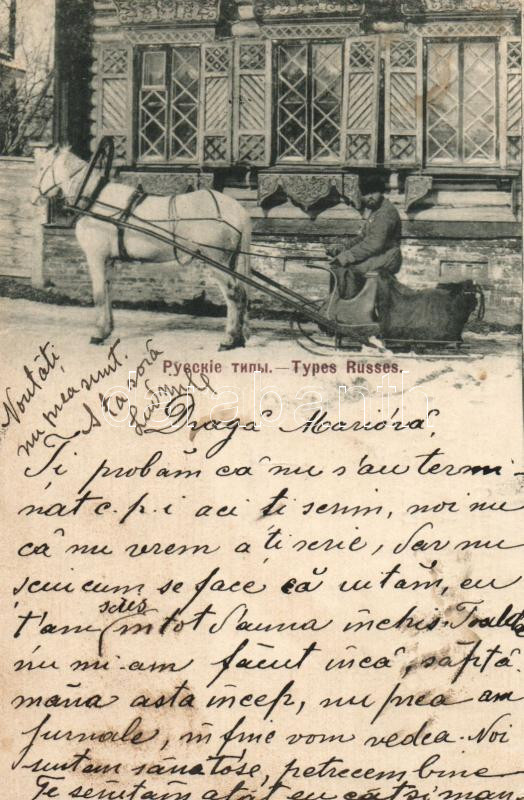 Русскіе типы. — Types Russes.
Noutăți
nu prea sunt.
A ta soră
Ludmila
Dragă Marioră,
Ți probăm că nu s'au termi-
nat c.p.i aci ți scrim, noi nu
că nu vrem a ți scrie, dar nu
știu cum se face că uităm, eu
t'am scris întotdauna închis. Toalete
nu mi-am făcut încă, săptă
mâna asta încep, nu prea am
jurnale, în fine vom vedea. Noi
suntem sănătose, petrecem bine
Te sărutăm atât eu cât și man